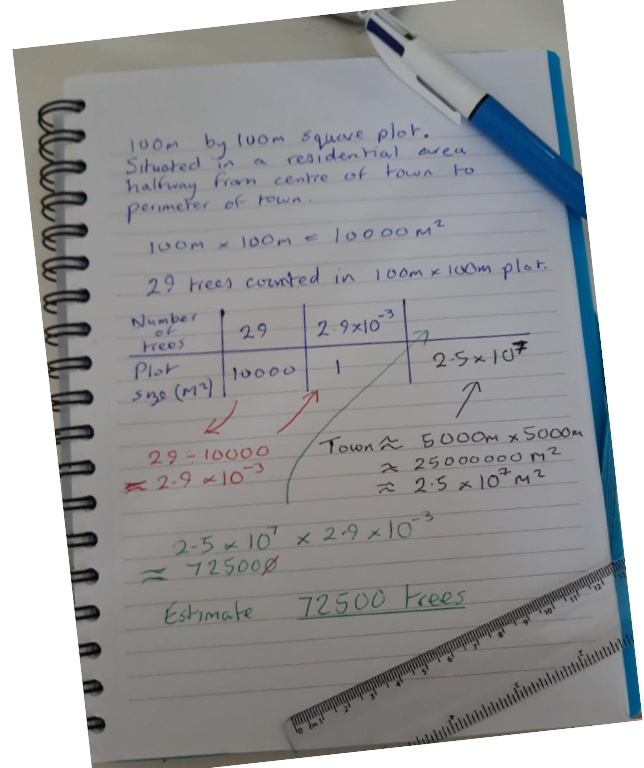 100m by 100m square plot.
Situated in a residential area
halfway from centre of town to
perimeter of town.
100m × 100m = 10000m²
29 trees counted in 100m×100m plot.
Number of trees 29 2.9×10⁻³
Plot size (m²) 10000 1 2.5×10⁷
29÷10000
≈ 2.9×10⁻³
Town ≈ 5000m×5000m
≈ 25000000m²
≈ 2.5×10⁷m²
2.5×10⁷ × 2.9×10⁻³
≈ 72500
Estimate 72500 trees
0 (m) 1 2 3 4 5 6 7 8 9 10 11 12